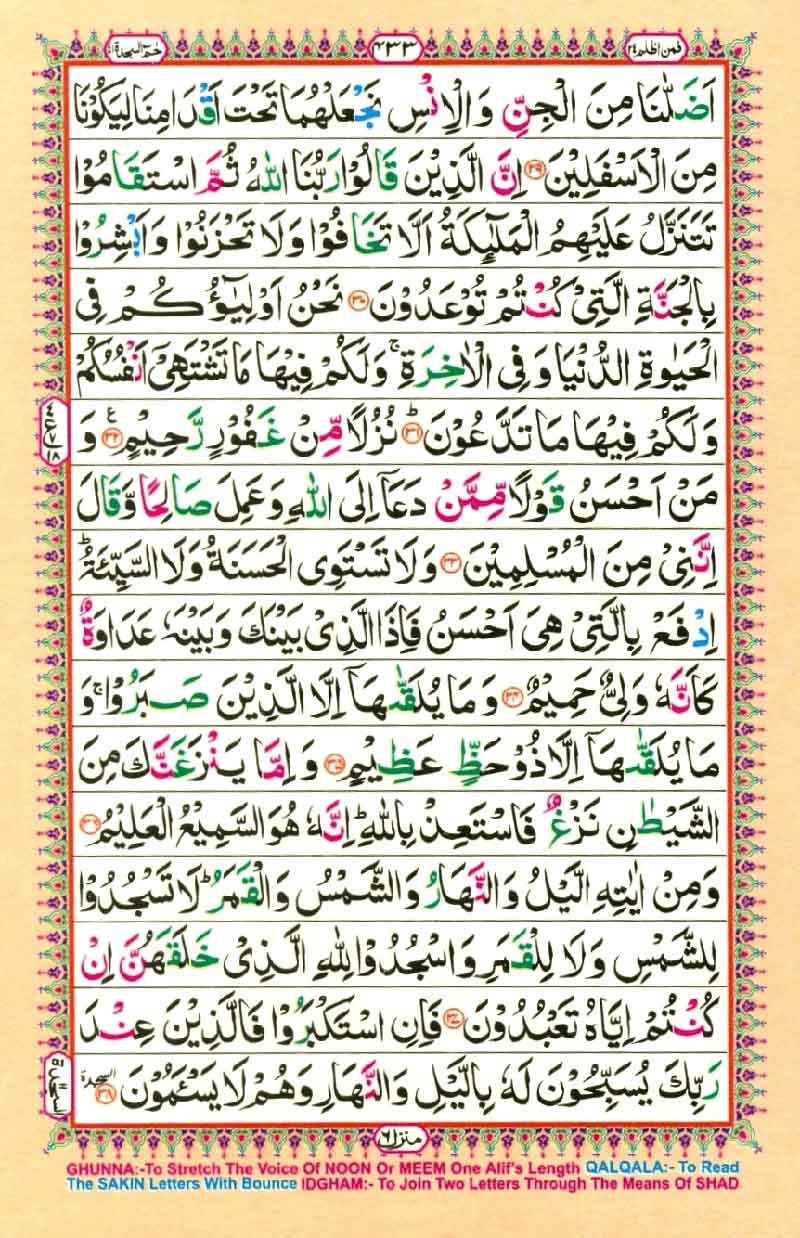 حٰمٓ السجدة ٤١
٤٣٣
فمن اظلم ٢٤
اَضَلّٰنَا مِنَ الْجِنِّ وَ الْاِنْسِ نَجْعَلْهُمَا تَحْتَ اَقْدَامِنَا لِيَكُوْنَا
مِنَ الْاَسْفَلِيْنَ ۝۲۹ اِنَّ الَّذِيْنَ قَالُوْا رَبُّنَا اللّٰهُ ثُمَّ اسْتَقَامُوْا
تَتَنَزَّلُ عَلَيْهِمُ الْمَلٰٓئِكَةُ اَلَّا تَخَافُوْا وَ لَا تَحْزَنُوْا وَ اَبْشِرُوْا
بِالْجَنَّةِ الَّتِيْ كُنْتُمْ تُوْعَدُوْنَ ۝۳۰ نَحْنُ اَوْلِيٰٓؤُكُمْ فِي
الْحَيٰوةِ الدُّنْيَا وَ فِي الْاٰخِرَةِ ۚ وَ لَكُمْ فِيْهَا مَا تَشْتَهِيْۤ اَنْفُسُكُمْ
وَ لَكُمْ فِيْهَا مَا تَدَّعُوْنَ ۝۳۱ؕ نُزُلًا مِّنْ غَفُوْرٍ رَّحِيْمٍ ۝۳۲ع وَ
مَنْ اَحْسَنُ قَوْلًا مِّمَّنْ دَعَاۤ اِلَى اللّٰهِ وَ عَمِلَ صَالِحًا وَّ قَالَ
اِنَّنِيْ مِنَ الْمُسْلِمِيْنَ ۝۳۳ وَ لَا تَسْتَوِي الْحَسَنَةُ وَ لَا السَّيِّئَةُ ؕ
اِدْفَعْ بِالَّتِيْ هِيَ اَحْسَنُ فَاِذَا الَّذِيْ بَيْنَكَ وَ بَيْنَهٗ عَدَاوَةٌ
كَاَنَّهٗ وَلِيٌّ حَمِيْمٌ ۝۳۴ وَ مَا يُلَقّٰىهَاۤ اِلَّا الَّذِيْنَ صَبَرُوْا ۚ وَ
مَا يُلَقّٰىهَاۤ اِلَّا ذُوْ حَظٍّ عَظِيْمٍ ۝۳۵ وَ اِمَّا يَنْزَغَنَّكَ مِنَ
الشَّيْطٰنِ نَزْغٌ فَاسْتَعِذْ بِاللّٰهِ ؕ اِنَّهٗ هُوَ السَّمِيْعُ الْعَلِيْمُ ۝۳۶
وَ مِنْ اٰيٰتِهِ الَّيْلُ وَ النَّهَارُ وَ الشَّمْسُ وَ الْقَمَرُ ؕ لَا تَسْجُدُوْا
لِلشَّمْسِ وَ لَا لِلْقَمَرِ وَ اسْجُدُوْا لِلّٰهِ الَّذِيْ خَلَقَهُنَّ اِنْ
كُنْتُمْ اِيَّاهُ تَعْبُدُوْنَ ۝۳۷ فَاِنِ اسْتَكْبَرُوْا فَالَّذِيْنَ عِنْدَ
رَبِّكَ يُسَبِّحُوْنَ لَهٗ بِالَّيْلِ وَ النَّهَارِ وَ هُمْ لَا يَسْئَمُوْنَ ۝۳۸ السجدة
السجدة
منزل ٦
GHUNNA:-To Stretch The Voice Of NOON Or MEEM One Alif's Length QALQALA:- To Read
The SAKIN Letters With Bounce IDGHAM:- To Join Two Letters Through The Means Of SHAD